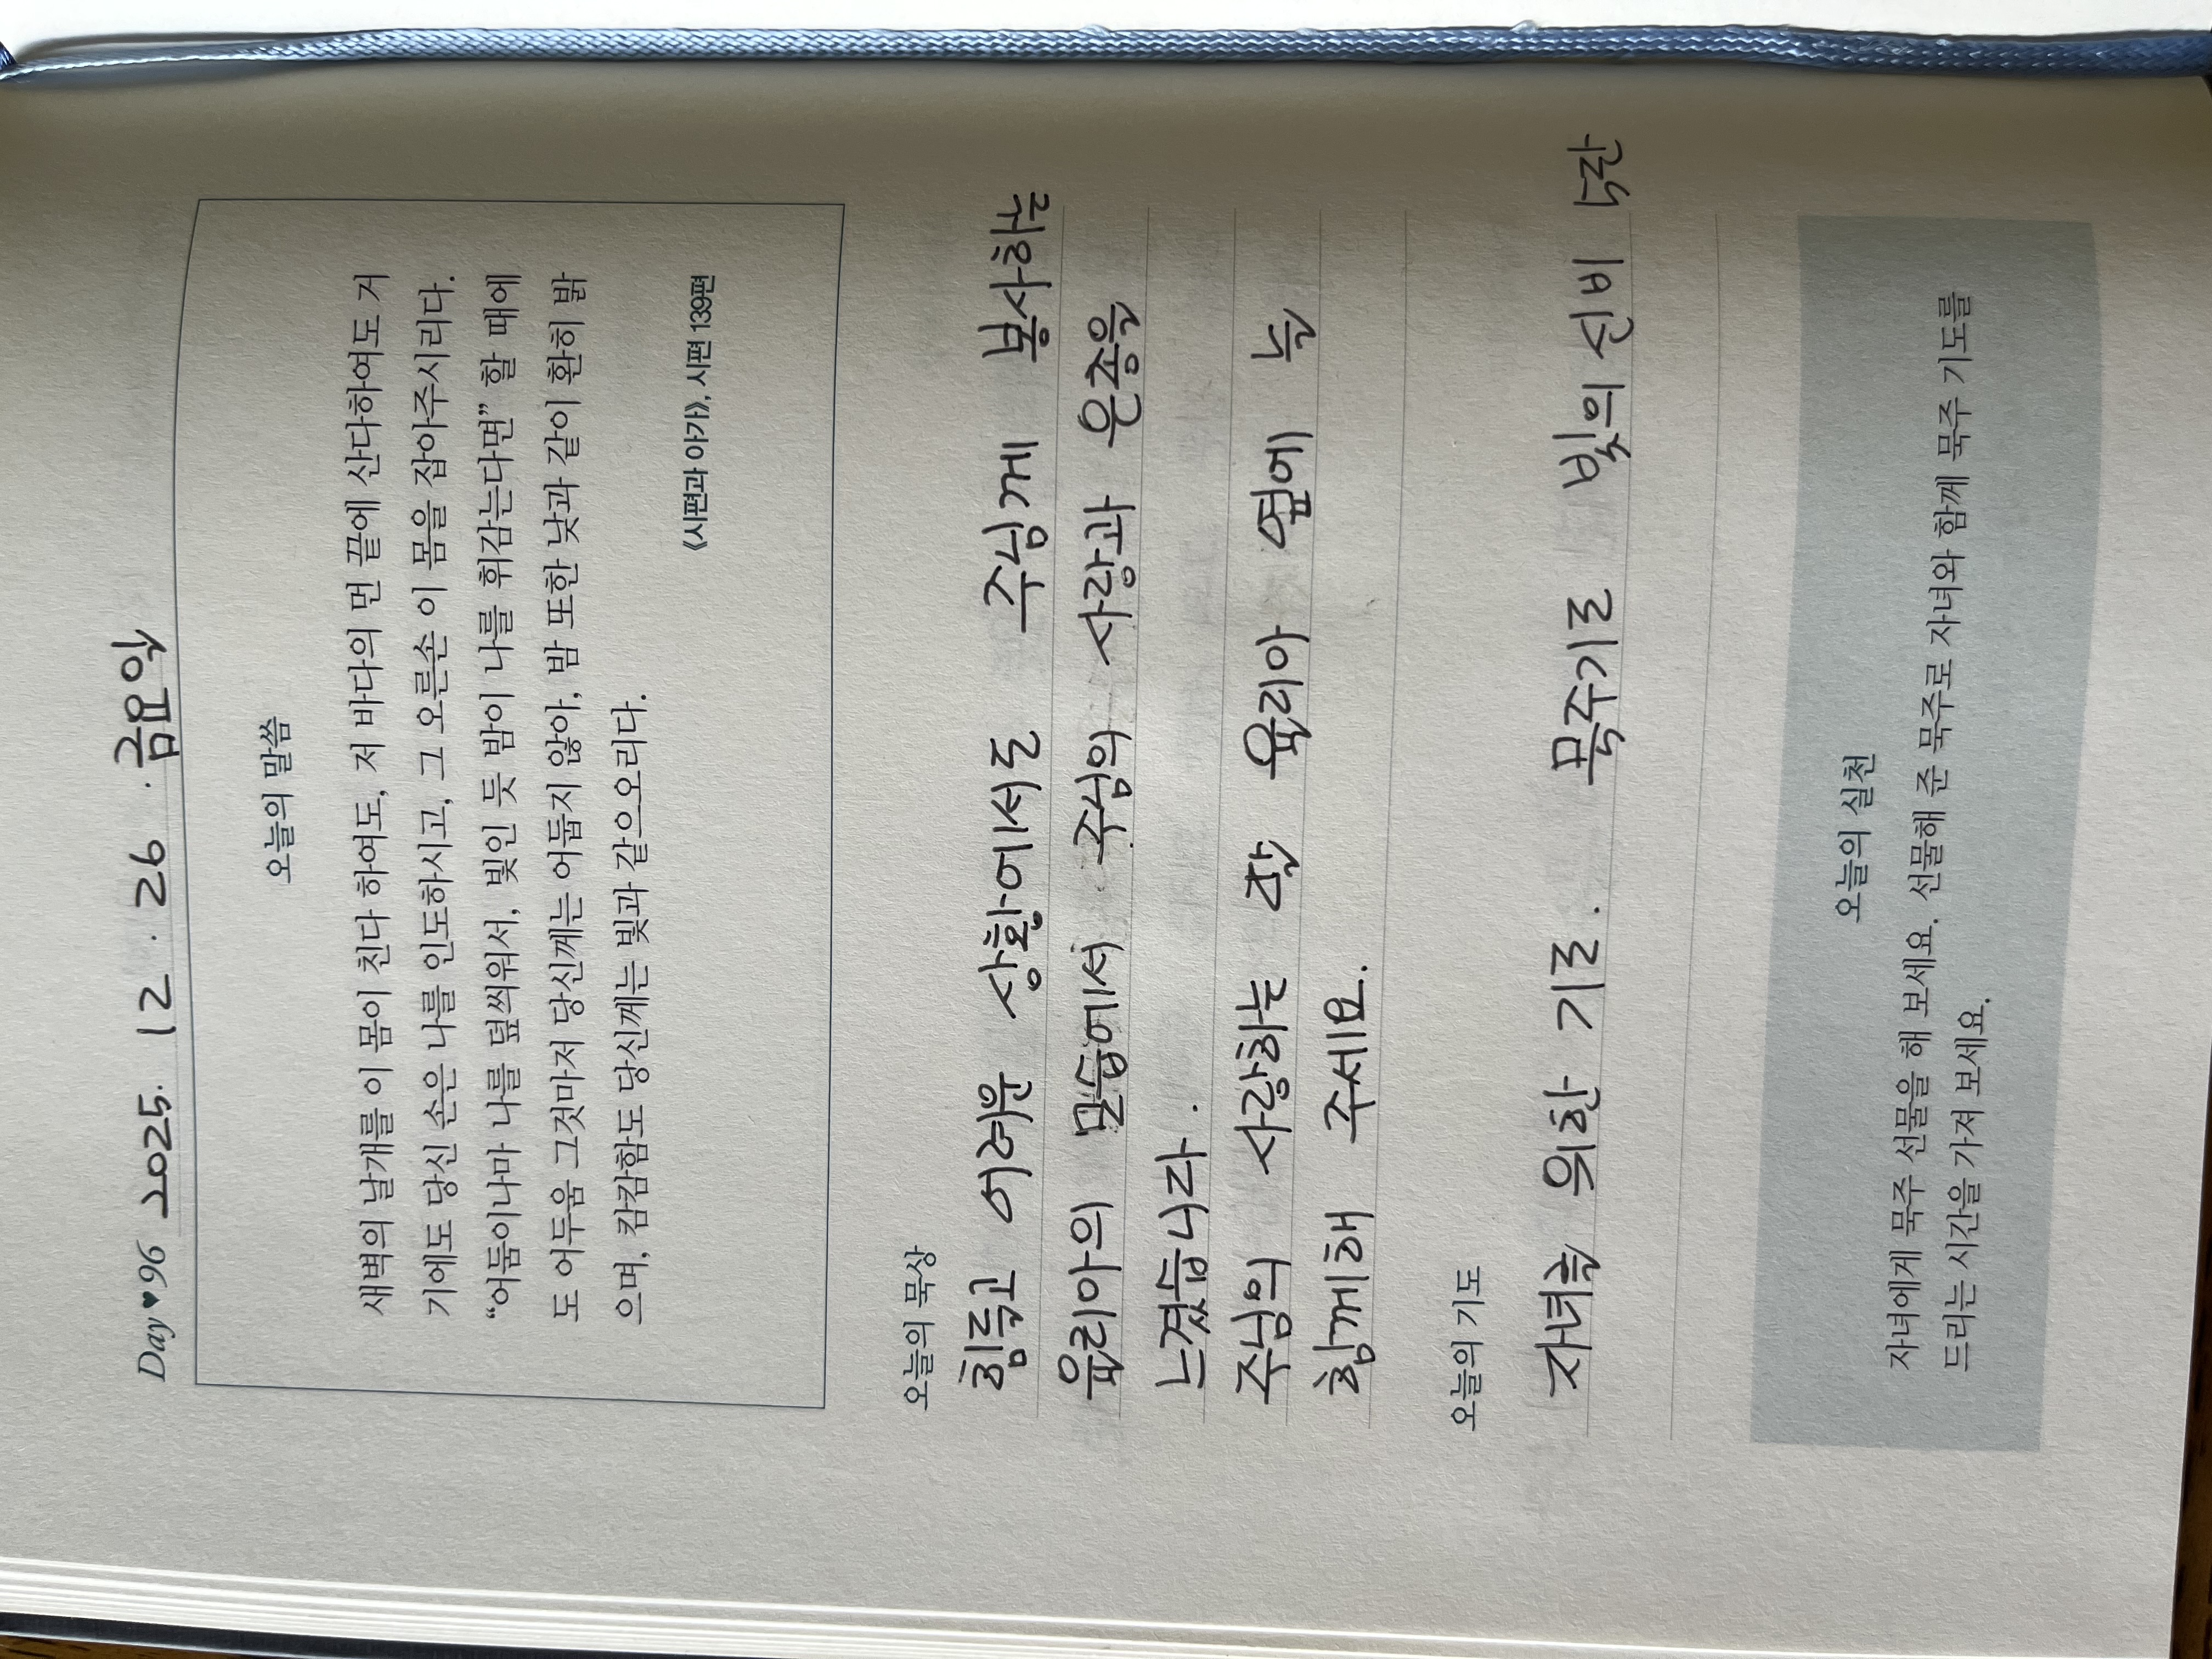 Day♥96 2025. 12. 26. 금요일
오늘의 말씀
새벽의 날개를 이 몸이 친다 하여도, 저 바다의 먼 끝에 산다하여도 거
기에도 당신 손은 나를 인도하시고, 그 오른손 이 몸을 잡아주시리다.
“어둠이나마 나를 덮씌워서, 빛인 듯 밤이 나를 휘감는다면” 할 때에
도 어두움 그것마저 당신께는 어둡지 않아, 밤 또한 낮과 같이 환히 밝
으며, 캄캄함도 당신께는 빛과 같으오리다.
《시편과 아가》, 시편 139편
오늘의 묵상
힘들고 어려운 상황에서도 주님께 봉사하는
율리아의 모습에서 주님의 사랑과 은총을
느꼈습니다.
주님의 사랑하는 딸 율리아 옆에 늘
함께해 주세요.
오늘의 기도
자녀를 위한 기도. 묵주기도 빛의 신비 5단
오늘의 실천
자녀에게 묵주 선물을 해 보세요. 선물해 준 묵주로 자녀와 함께 묵주 기도를
드리는 시간을 가져 보세요.